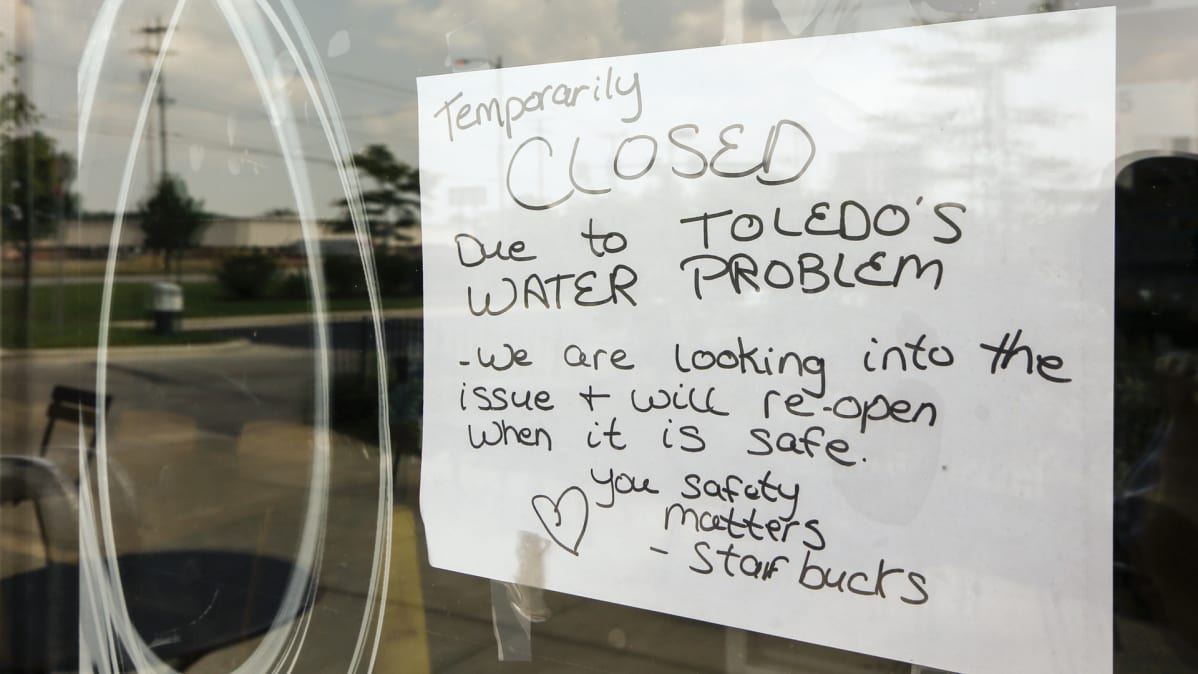 Temporarily
CLOSED
Due to TOLEDO'S
WATER PROBLEM
-We are looking into the
issue + will re-open
when it is safe.
you safety
matters
- Starbucks